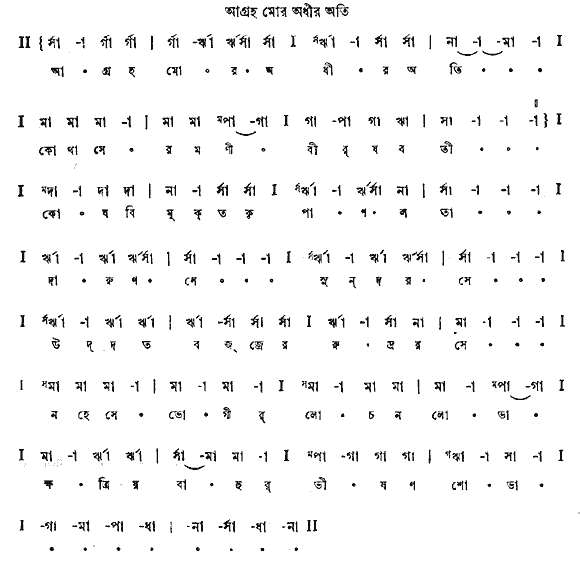 আগ্রহ মোর অধীর অতি
II {র্সা -া র্গা র্গা | র্গা -র্ঋা র্ঋর্সা র্সা I র্সর্ঋা -া র্সা র্সা | না -া -মা -া I
আ • গ্র হ মো ॰ র ॰ অ ধী ॰ র অ তি ॰ ॰ ॰
I মা মা মা -া | মা মা মপা -গা I গা -পা গা ঋা | সা -া -া -া} I
কো থা সে ॰ র ম ণী ॰ বী র্ য ব তী ॰ ॰ ॰
I মদা -া দা দা | না -া র্সা র্সা I র্সর্ঋা -া র্ঋর্সা না | র্সা -া -া -া I
কো ষ বি মু ক্ ত কৃ পা ॰ ণ ॰ ল তা ॰ ॰ ॰
I র্ঋা -া র্ঋা র্ঋর্সা | র্সা -া -া -া I র্সর্ঋা -া র্ঋা র্ঋর্সা | র্সা -া -া -া I
দা ॰ রু ণ ॰ সে ॰ ॰ ॰ সু ন্ দ র ॰ সে ॰ ॰ ॰
I র্সর্ঋা -া র্ঋা র্ঋা | র্ঋা -র্সা র্সা র্সা I র্ঋা -া র্সা না | মা -া -া -া I
উ দ্ য ত ব জ্ রে র রু ॰ দ্র র সে ॰ ॰ ॰
I মা মা মা -া | মা -া মা -া I মা -া মা মা | মা -া মপা -গা I
ন হে সে ॰ ভো ॰ গী র্ লো ॰ চ ন লো ॰ ভা ॰
I মা -া র্ঋা র্ঋা | র্সা -মা মা -া I মপা -গা গা গা | গঋা -া সা -া I
ক্ষ ॰ ত্রি য় বা ॰ হু র্ ভী ॰ ষ ণ শো ॰ ভা ॰
I -গা -মা -পা -ধা | -না -র্সা -ধা -না II
॰ ॰ ॰ ॰ ॰ ॰ ॰ ॰